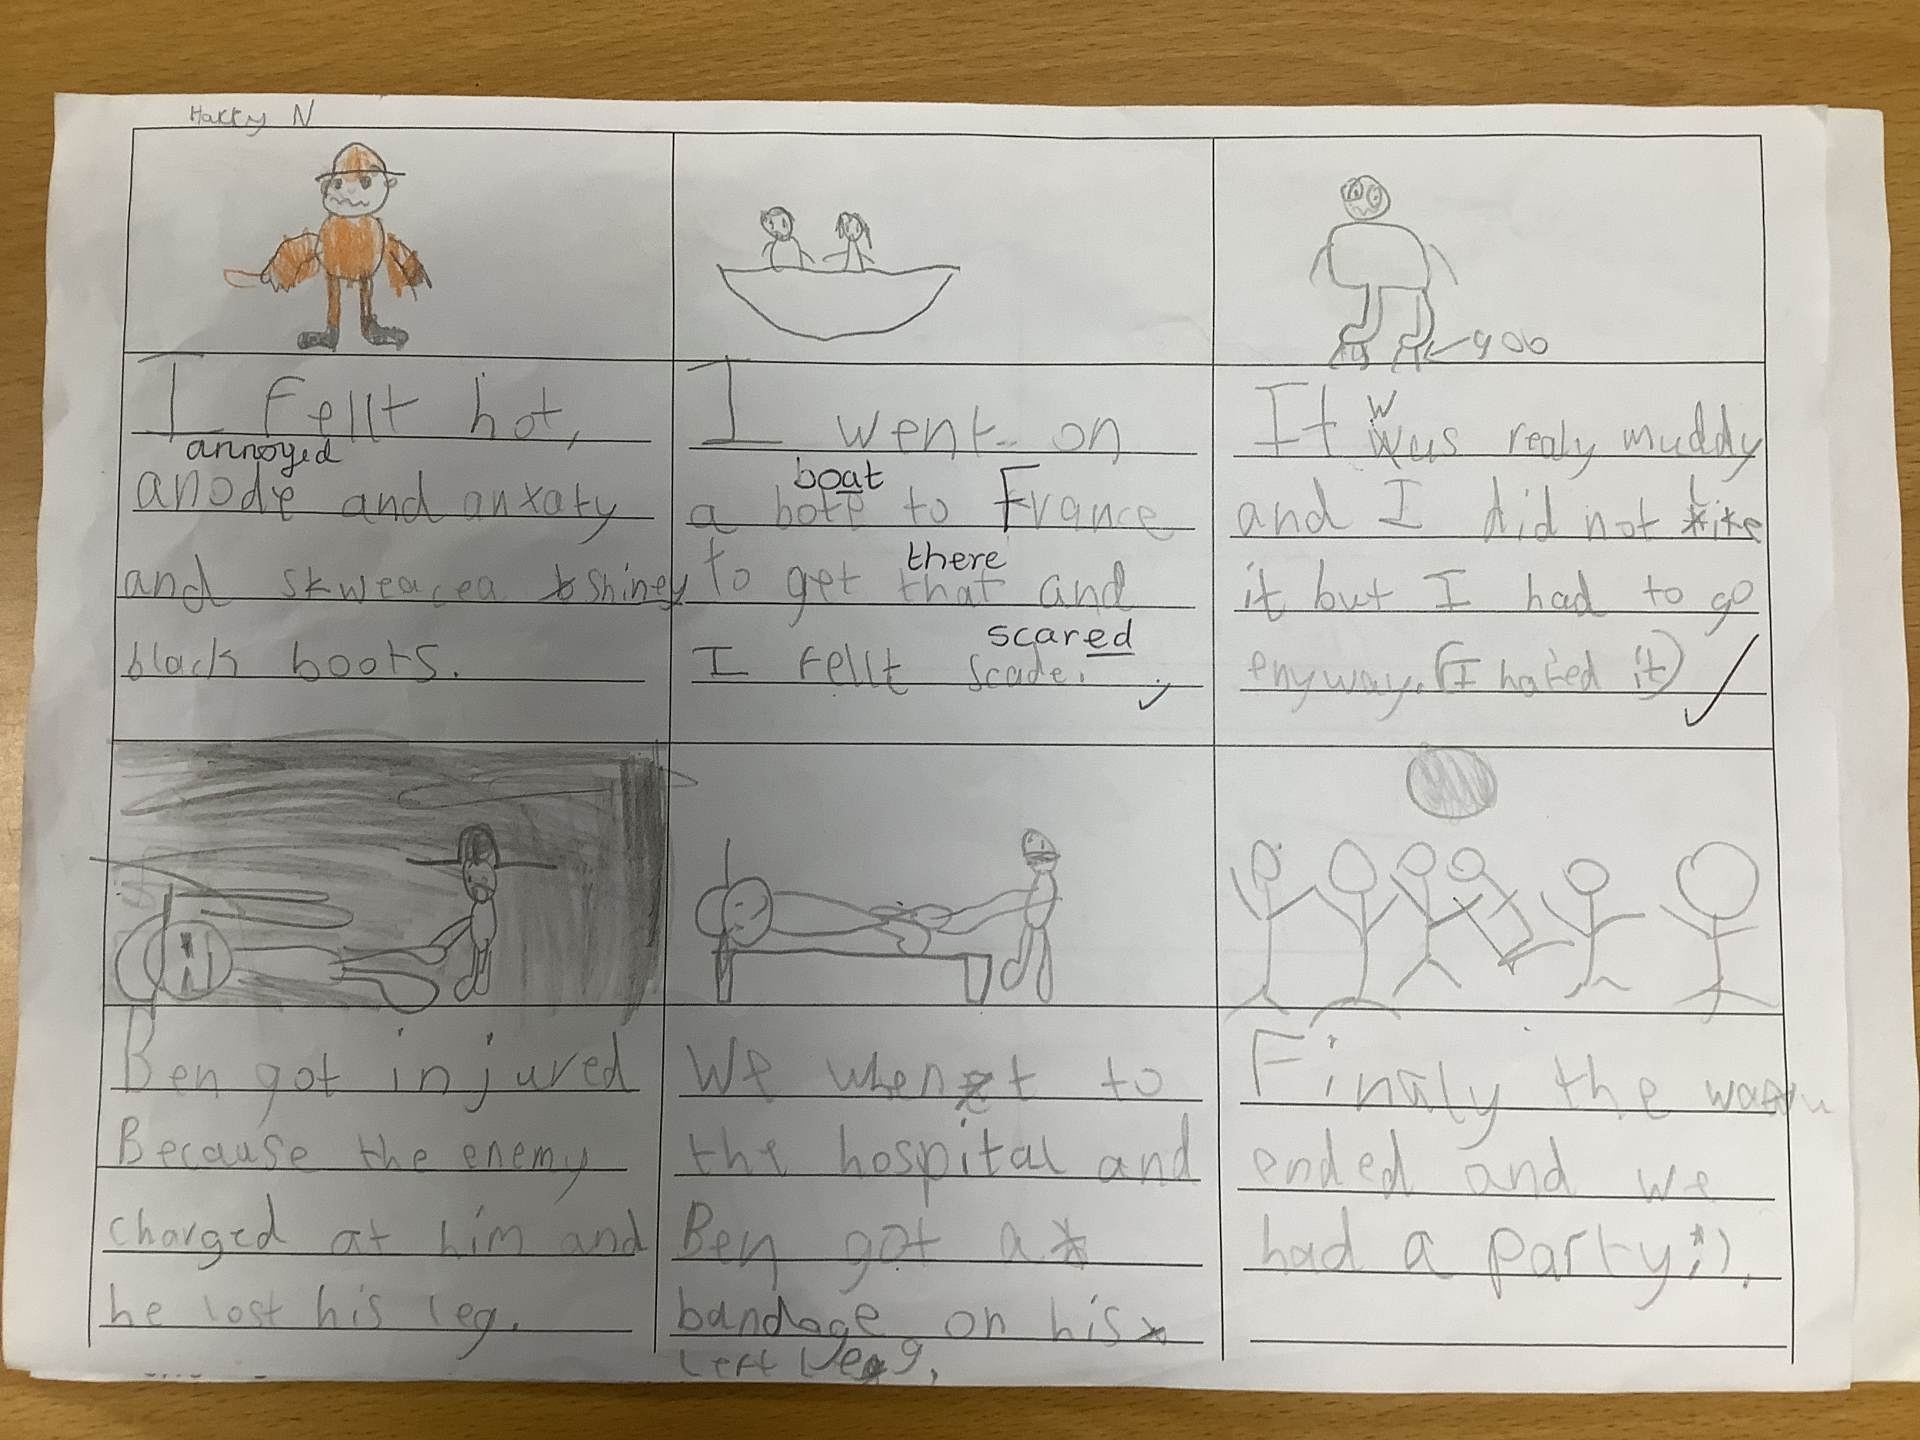 Harry N
goo
I fellt hot,
annoyed
anode and anxaty
and skweacea shiney
black boots.
I went on
boat
a bote to France
there
to get that and
scared
I fellt scade.
It wus realy muddy
and I did not like
it but I had to go
enyway. (I hated it)
Ben got injured
Because the enemy
charged at him and
he lost his leg.
We whent to
the hospital and
Ben got a
bandage on his
left leg.
Finaly the
ended and we
had a party ;).